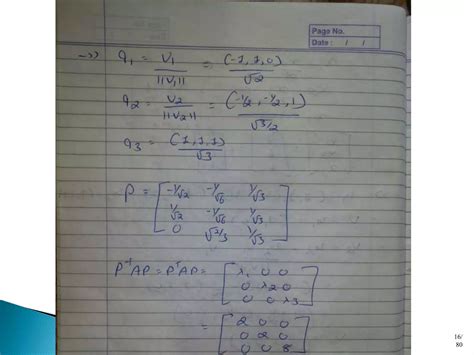 Page No.
Date : / /
→) q₁ = V₁/||V₁|| = (-1, 1, 0)/√2
q₂ = V₂/||V₂|| = (-1/2, -1/2, 1)/√3/2
q₃ = (1, 1, 1)/√3
P = [ -1/√2 -1/√6 1/√3
1/√2 -1/√6 1/√3
0 √2/3 1/√3 ]
P⁻¹AP = PᵀAP = [ λ₁ 0 0
0 λ₂ 0
0 0 λ₃ ]
= [ 2 0 0
0 2 0
0 0 8 ]
16/
80